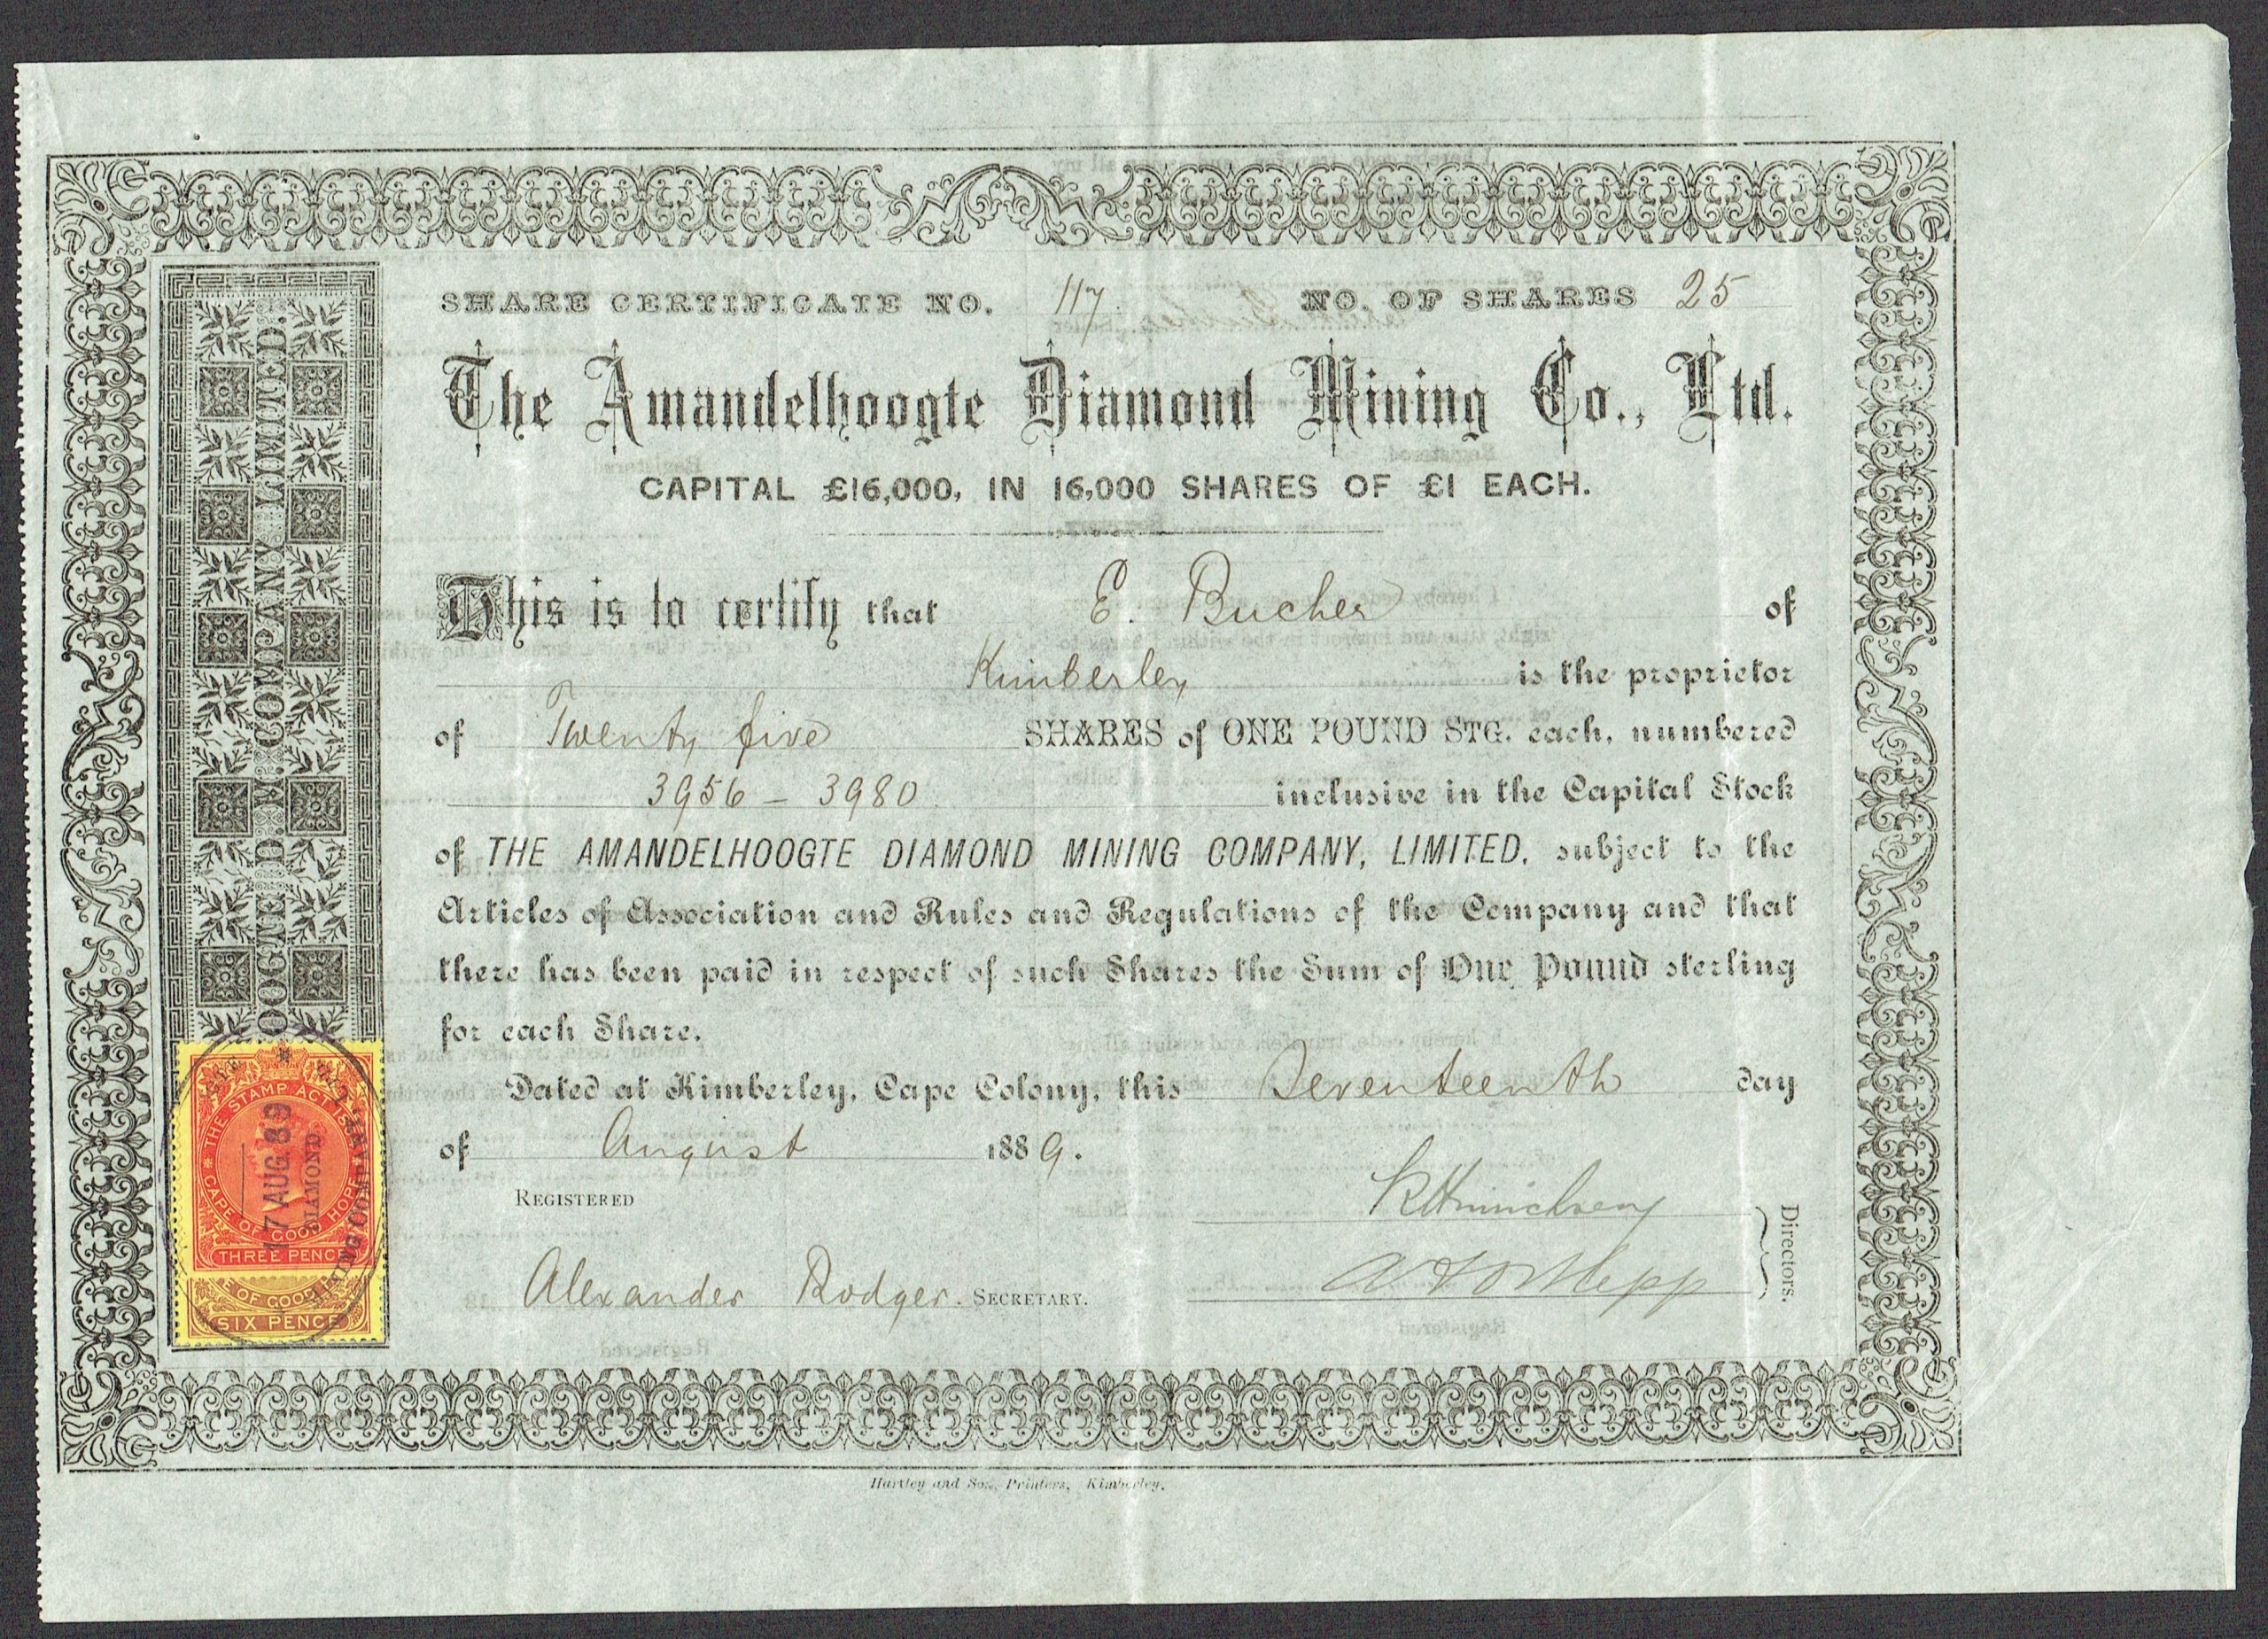 SHARE CERTIFICATE NO. 117. NO. OF SHARES 25
The Amandelhoogte Diamond Mining Co., Ltd.
CAPITAL £16,000, IN 16,000 SHARES OF £1 EACH.
This is to certify that E. Bucher of
Kimberley is the proprietor
of Twenty five SHARES of ONE POUND STG. each, numbered
3956 – 3980 inclusive in the Capital Stock
of THE AMANDELHOOGTE DIAMOND MINING COMPANY, LIMITED, subject to the
Articles of Association and Rules and Regulations of the Company and that
there has been paid in respect of such Shares the Sum of One Pound sterling
for each Share.
Dated at Kimberley, Cape Colony, this Seventeenth day
of August 1889.
REGISTERED
Alexander Rodger. SECRETARY.
Directors.
OOGTE D. M. COMPANY LIMITED.
THE STAMP ACT
CAPE OF GOOD HOPE
THREE PENCE
17 AUG. 89
DIAMOND
MINING COMPANY, LTD.
E OF GOOD
SIX PENCE
Hartley and Son, Printers, Kimberley.